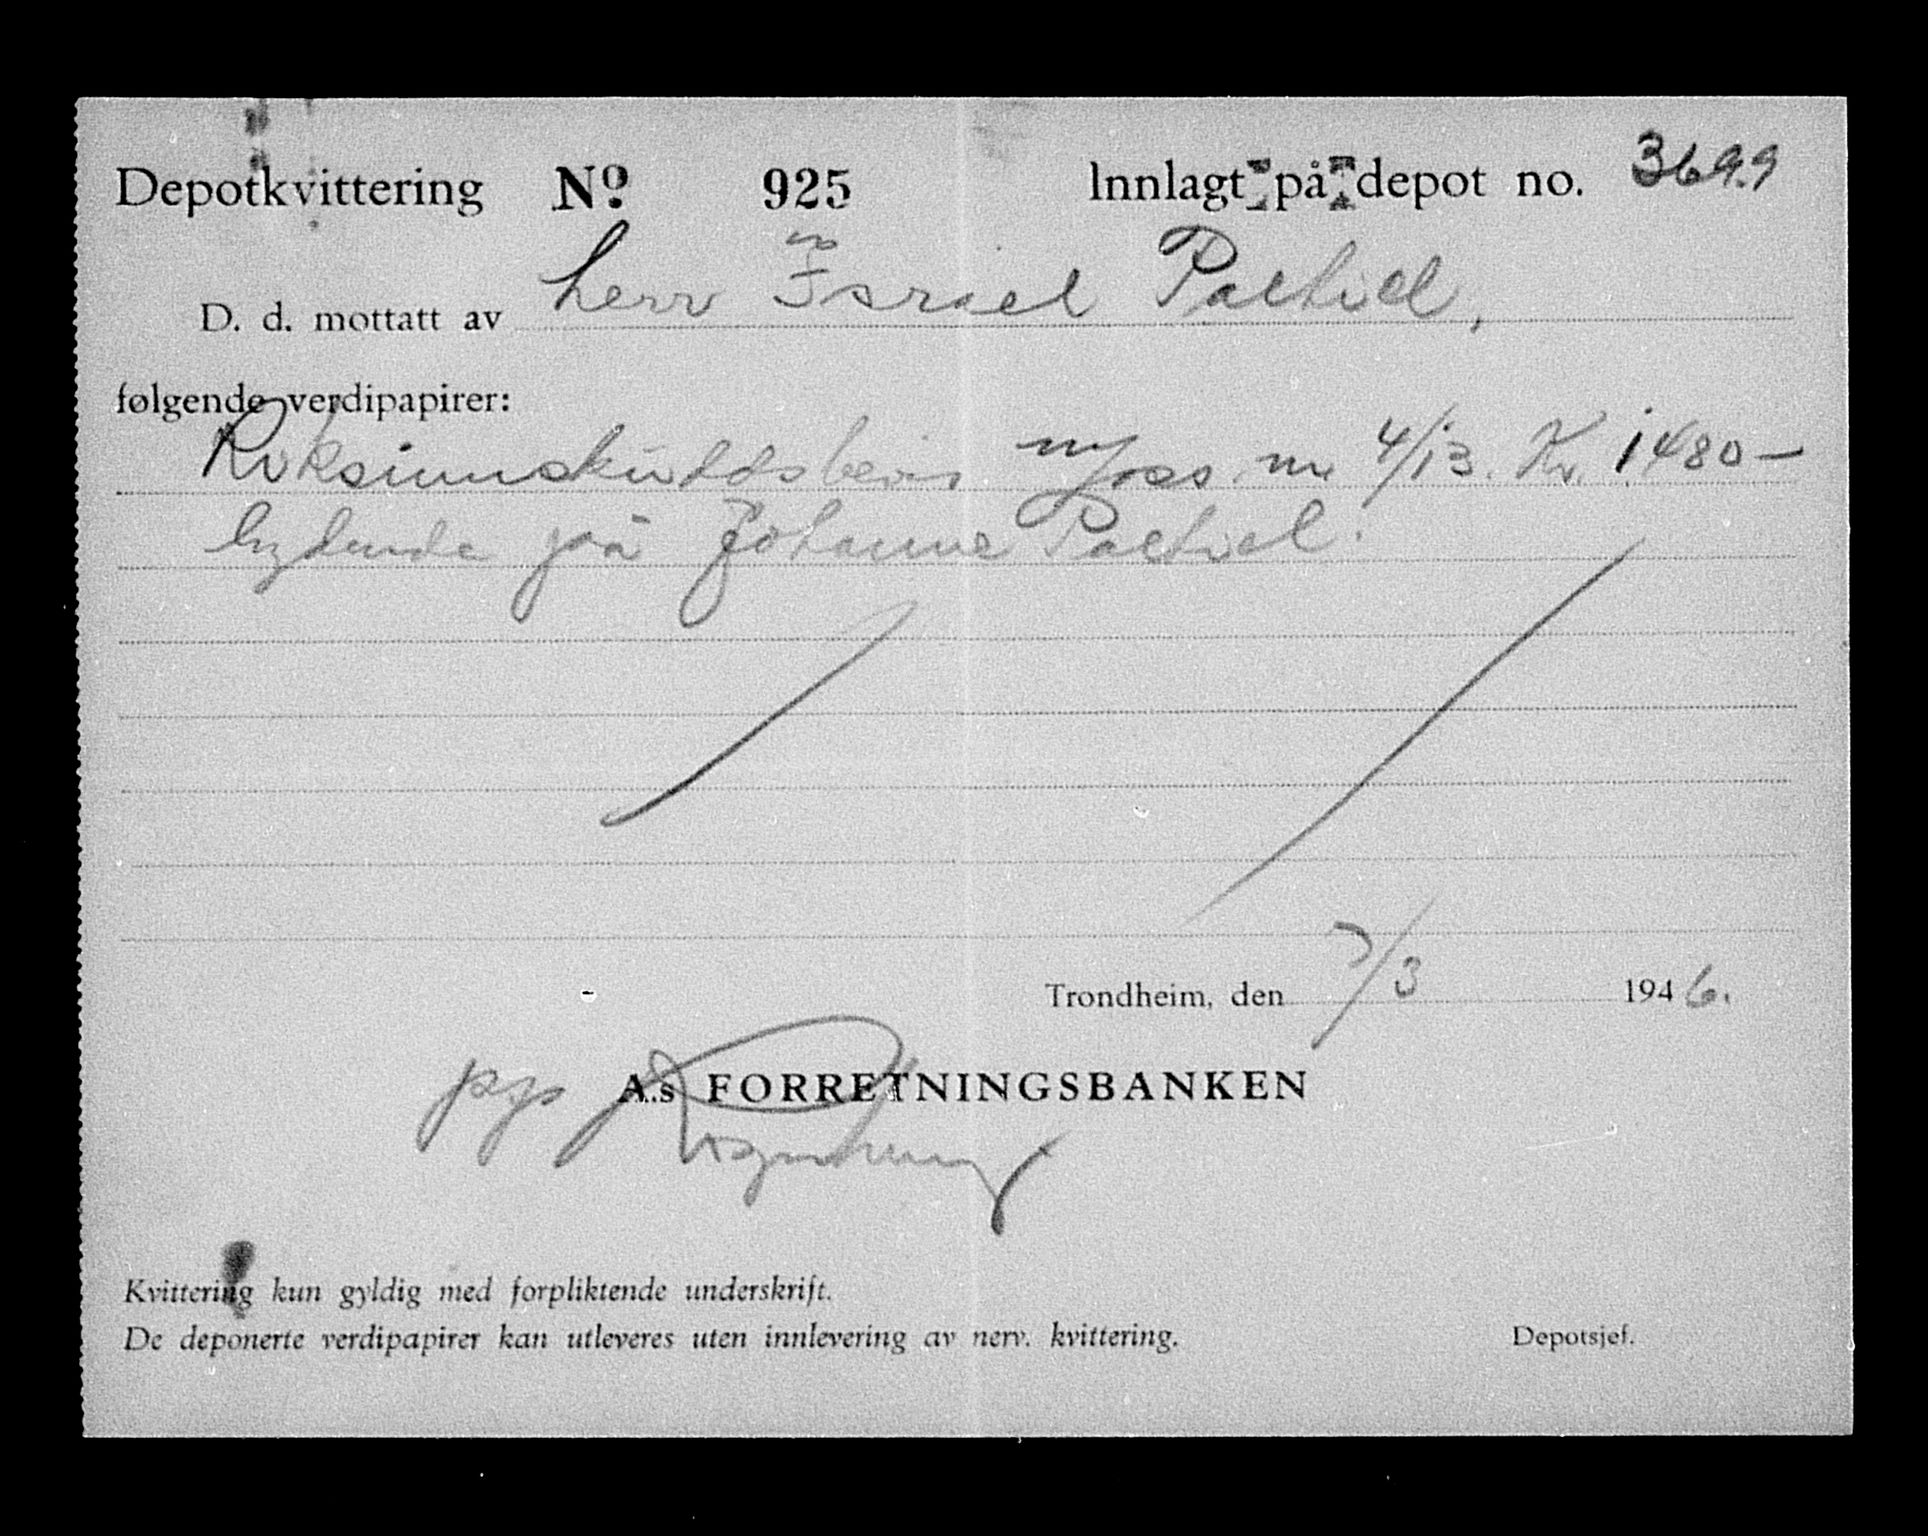 Depotkvittering No 925 Innlagt på depot no. 3699
D. d. mottatt av herr Israel Paltiel,
følgende verdipapirer:
Riksinnskuddsbevis nr 4/13. Kr. 1480-
lydende på Johanne Paltiel.
Trondheim, den 7/3 1946.
A.s FORRETNINGSBANKEN
pp
Kvittering kun gyldig med forpliktende underskrift.
De deponerte verdipapirer kan utleveres uten innlevering av nerv. kvittering. Depotsjef.